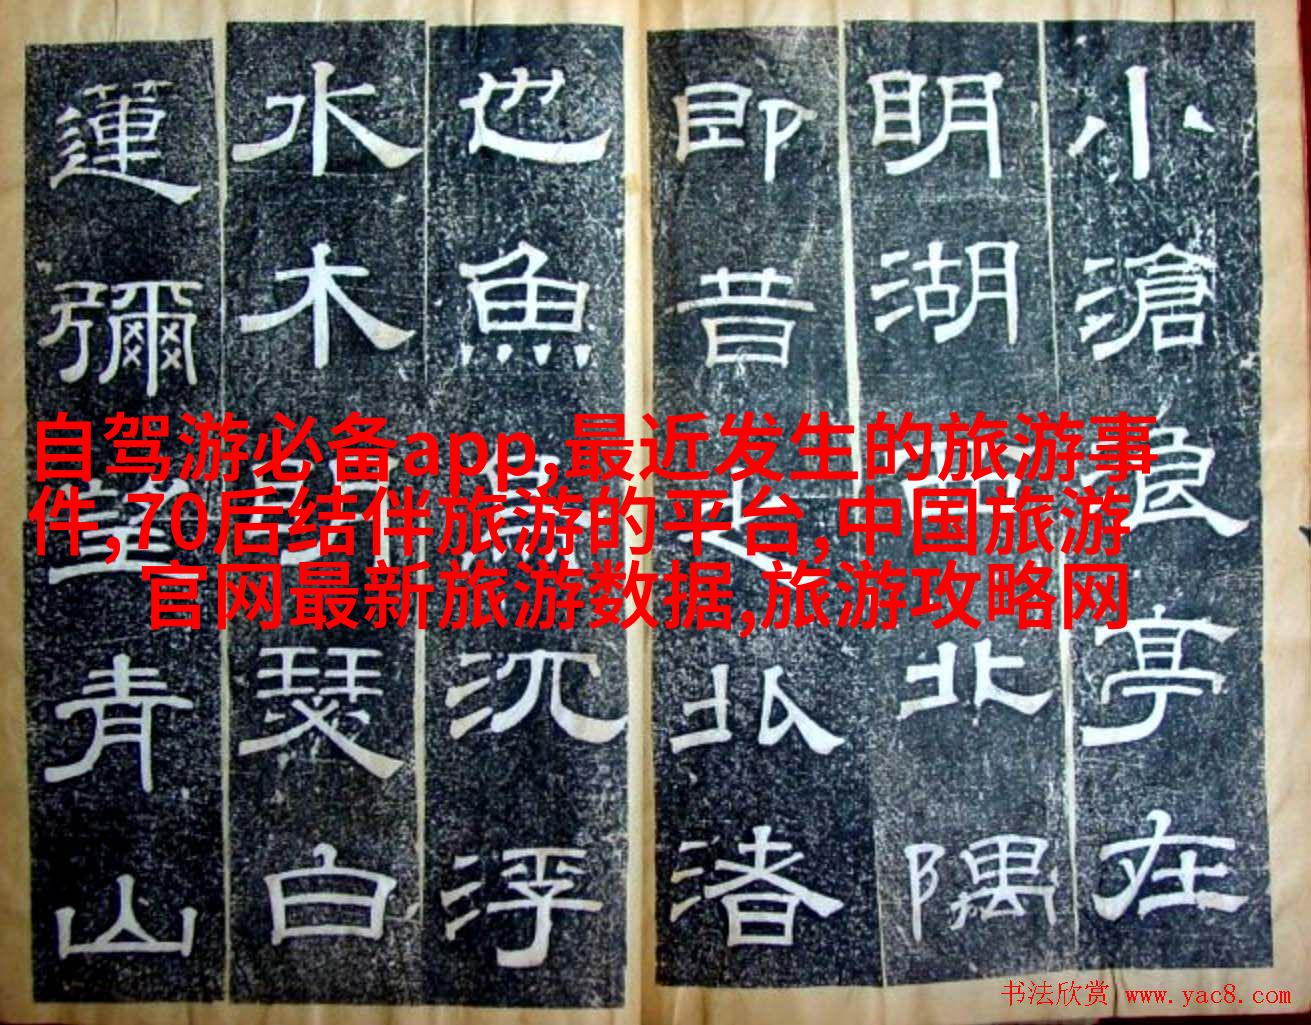 小滄浪亭在
明湖北隅
即昔之北渚
也魚鳥沉浮
水木瑟白
蓮彌望青山
自驾游必备app,最近发生的旅游事
件,70后结伴旅游的平台,中国旅游
官网最新旅游数据,旅游攻略网
书法欣赏 www.yac8.com